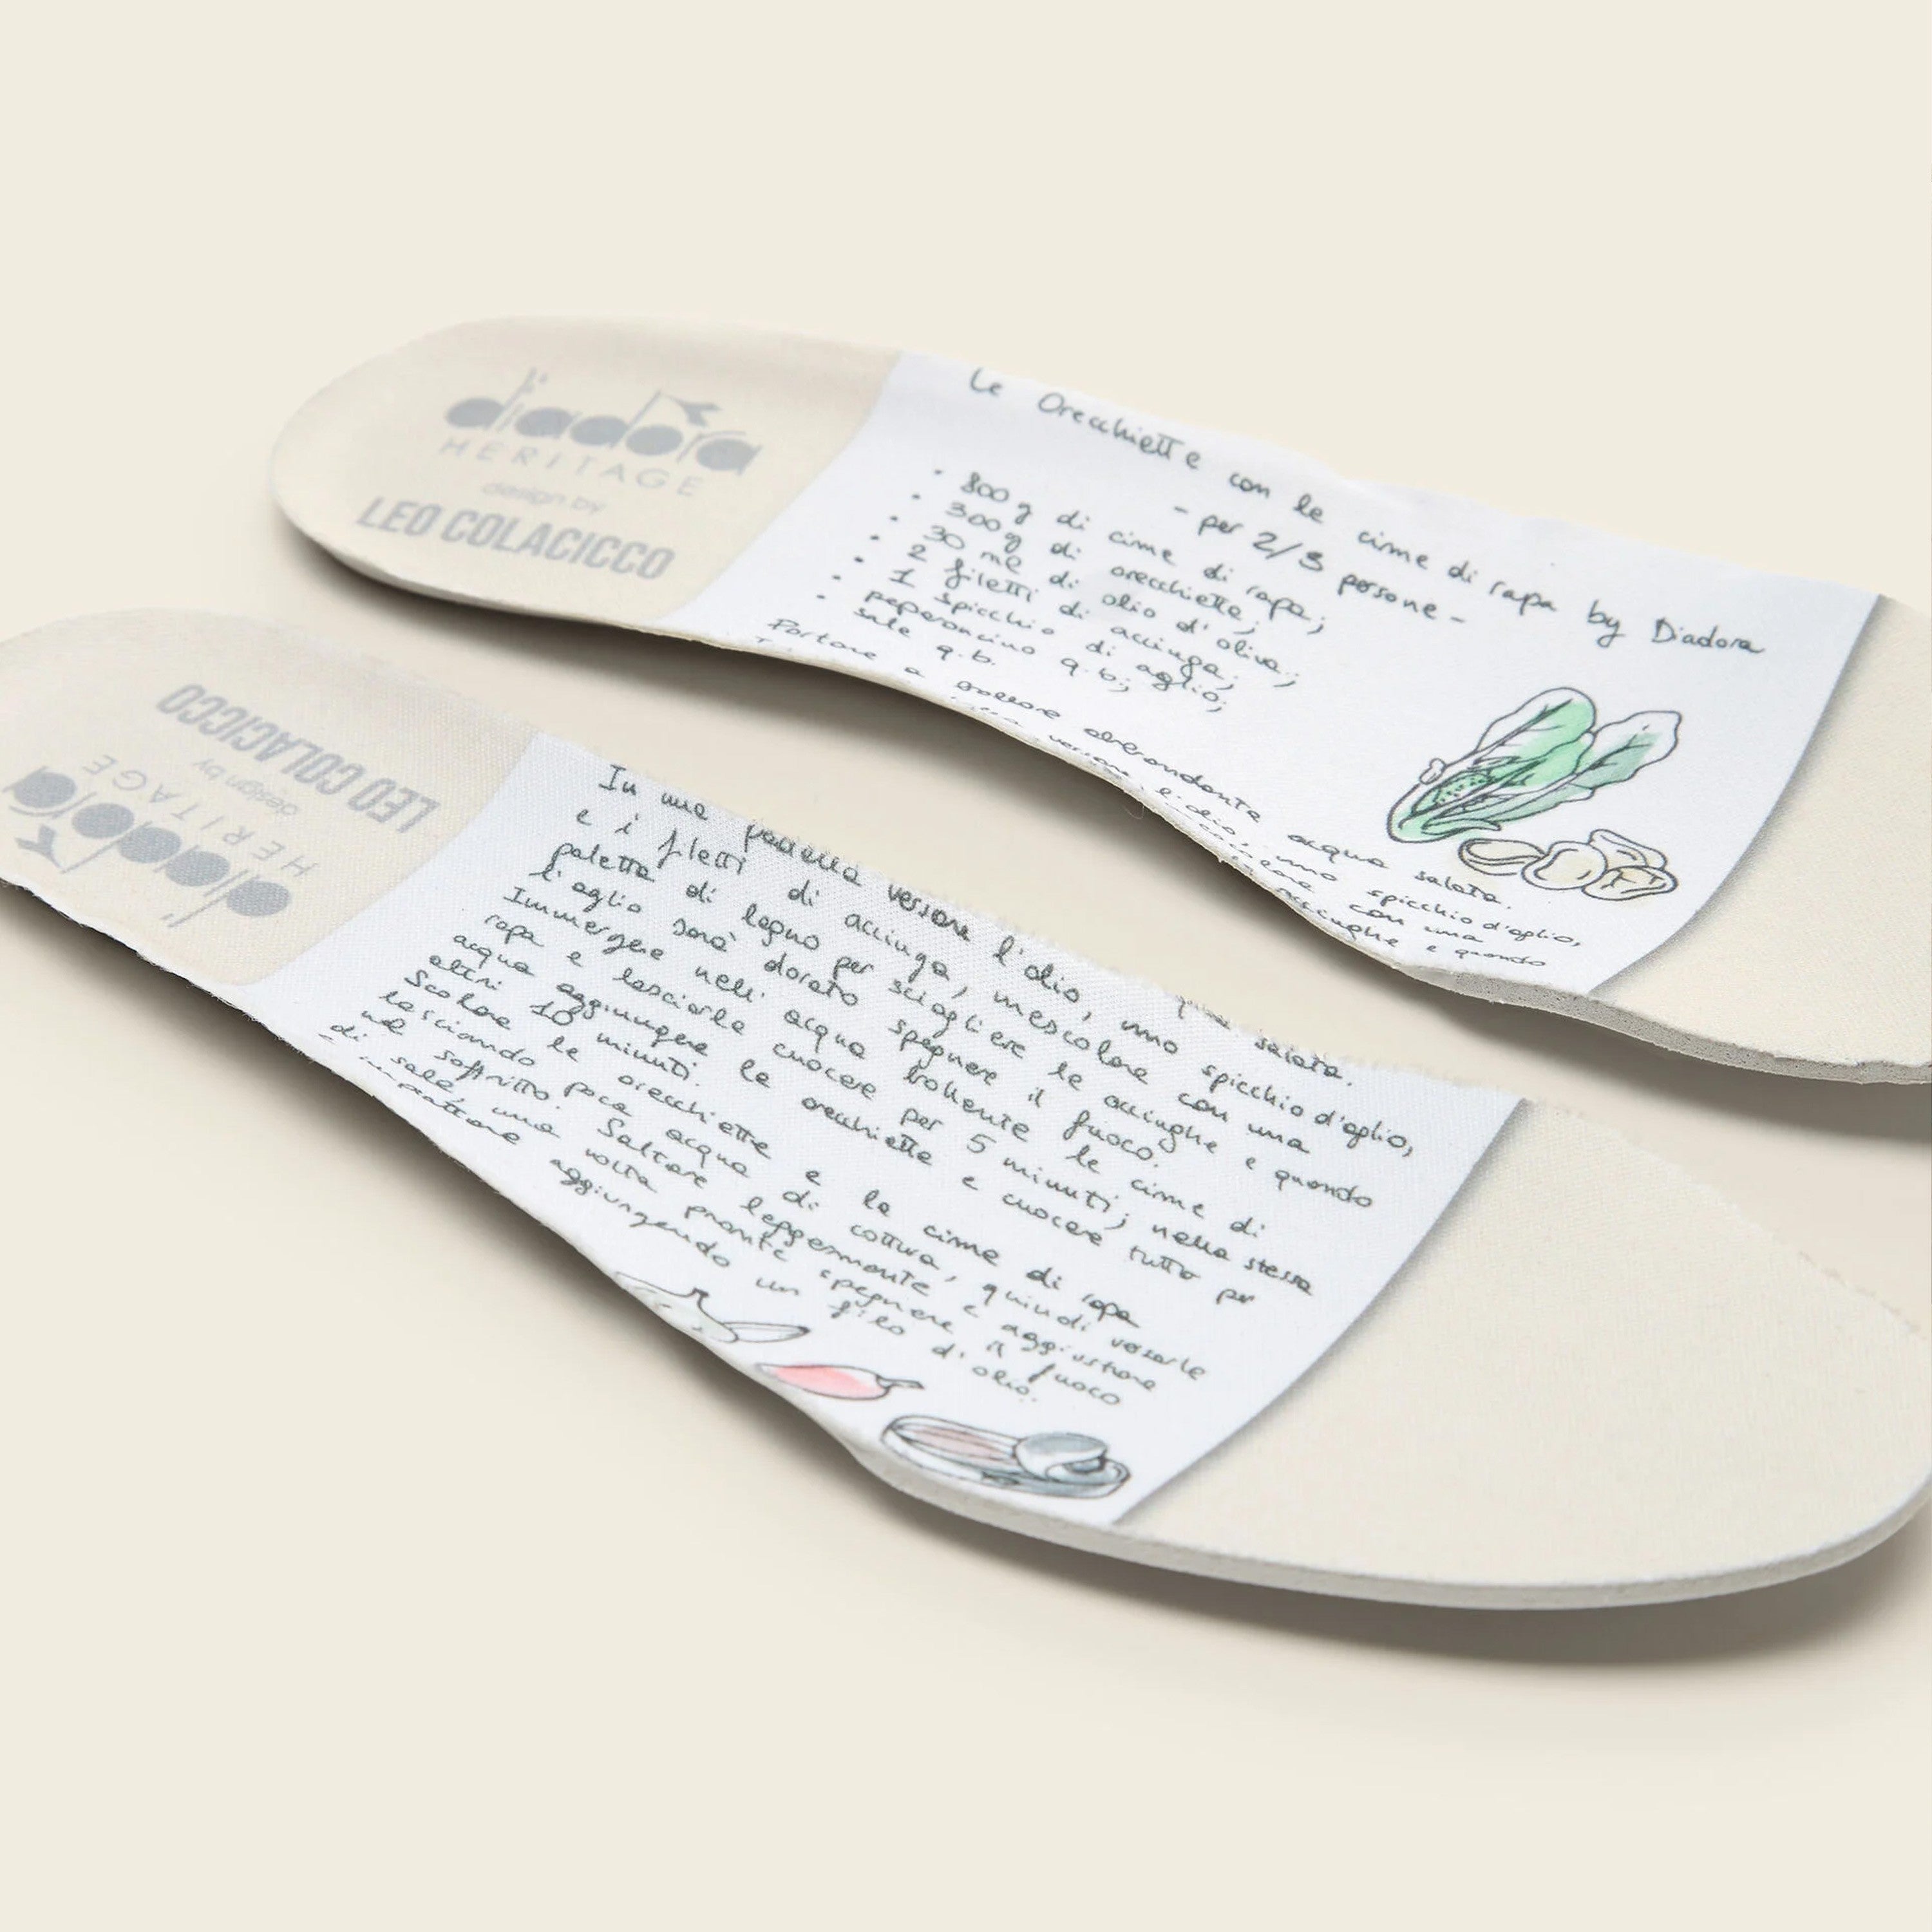 diadora
HERITAGE
design by
LEO COLACICCO
Le Orecchiette con le cime di rapa by Diadora
- per 2/3 persone -
• 800 g di cime di rapa;
• 300 g di orecchiette;
• 30 ml di olio d'oliva;
• 2 filetti di acciuga;
• 1 spicchio di aglio;
• peperoncino q.b;
• sale q.b.
Portare a bollore abbondante acqua salata.
versare l'olio, uno spicchio d'aglio,
con una
acciughe e quando
diadora
HERITAGE
design by
LEO COLACICCO
salata.
In una padella versare l'olio, uno spicchio d'aglio,
e i filetti di acciuga, mescolare con una
paletta di legno per sciogliere le acciughe e quando
l'aglio sarà dorato spegnere il fuoco.
Immergere nell'acqua bollente le cime di
rapa e lasciarle cuocere per 5 minuti; nella stessa
acqua aggiungere le orecchiette e cuocere tutto per
altri 10 minuti.
Scolare le orecchiette e le cime di rapa
lasciando poca acqua di cottura, quindi versarle
nel soffritto. Saltare leggermente e aggiustare
di sale, una volta pronte spegnere il fuoco
e impiattare aggiungendo un filo di olio.